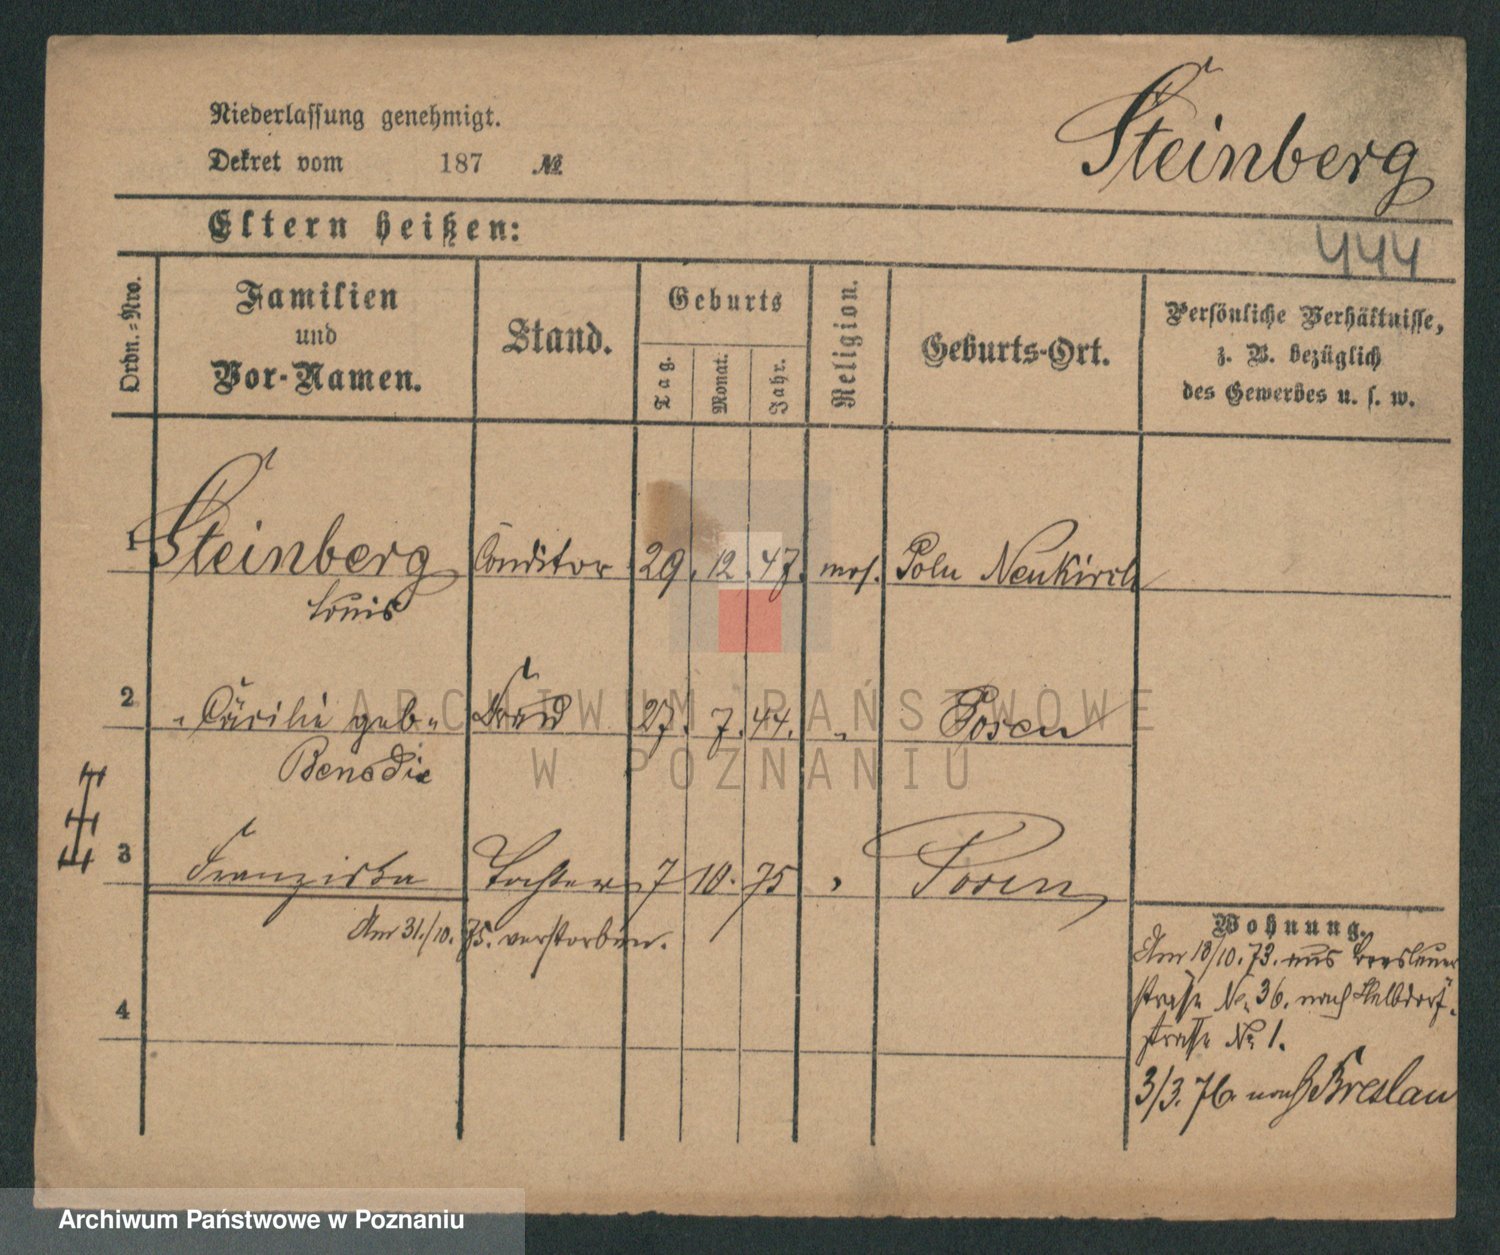 Niederlassung genehmigt.
Steinberg
Dekret vom 187 №
Eltern heißen:
444
Ordn.-Nro.
Familien und Vor-Namen.
Stand.
Geburts
Tag.
Monat.
Jahr.
Religion.
Geburts-Ort.
Persönliche Verhältnisse,
z. B. bezüglich
des Gewerbes u. s. w.
1 Steinberg Conditor 29. 12. 47. mos. Poln Neukirch
Louis
2 " Cäcilie geb. Frau 27. 7. 44. " Posen
Benedix
3 Franziska Tochter 7 10. 75 " Posen
Am 31./10. 75. verstorben.
4
Wohnung.
Am 18/10. 73. aus Breslauer
straße No. 36. nach Halbdorf-
straße No 1.
3/3. 76. nach Breslau
ARCHIWUM PAŃSTWOWE
W POZNANIU
Archiwum Państwowe w Poznaniu